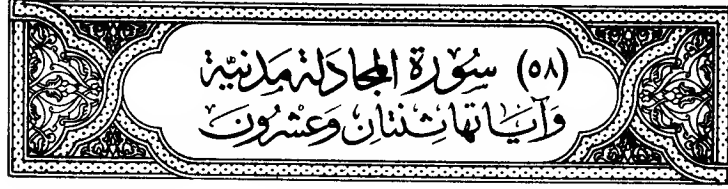 (٥٨) سُورَةُ المجَادلَة مَدنيَّة
وَآيَاتهَا ثِنتَانِ وَعشْرُونَ